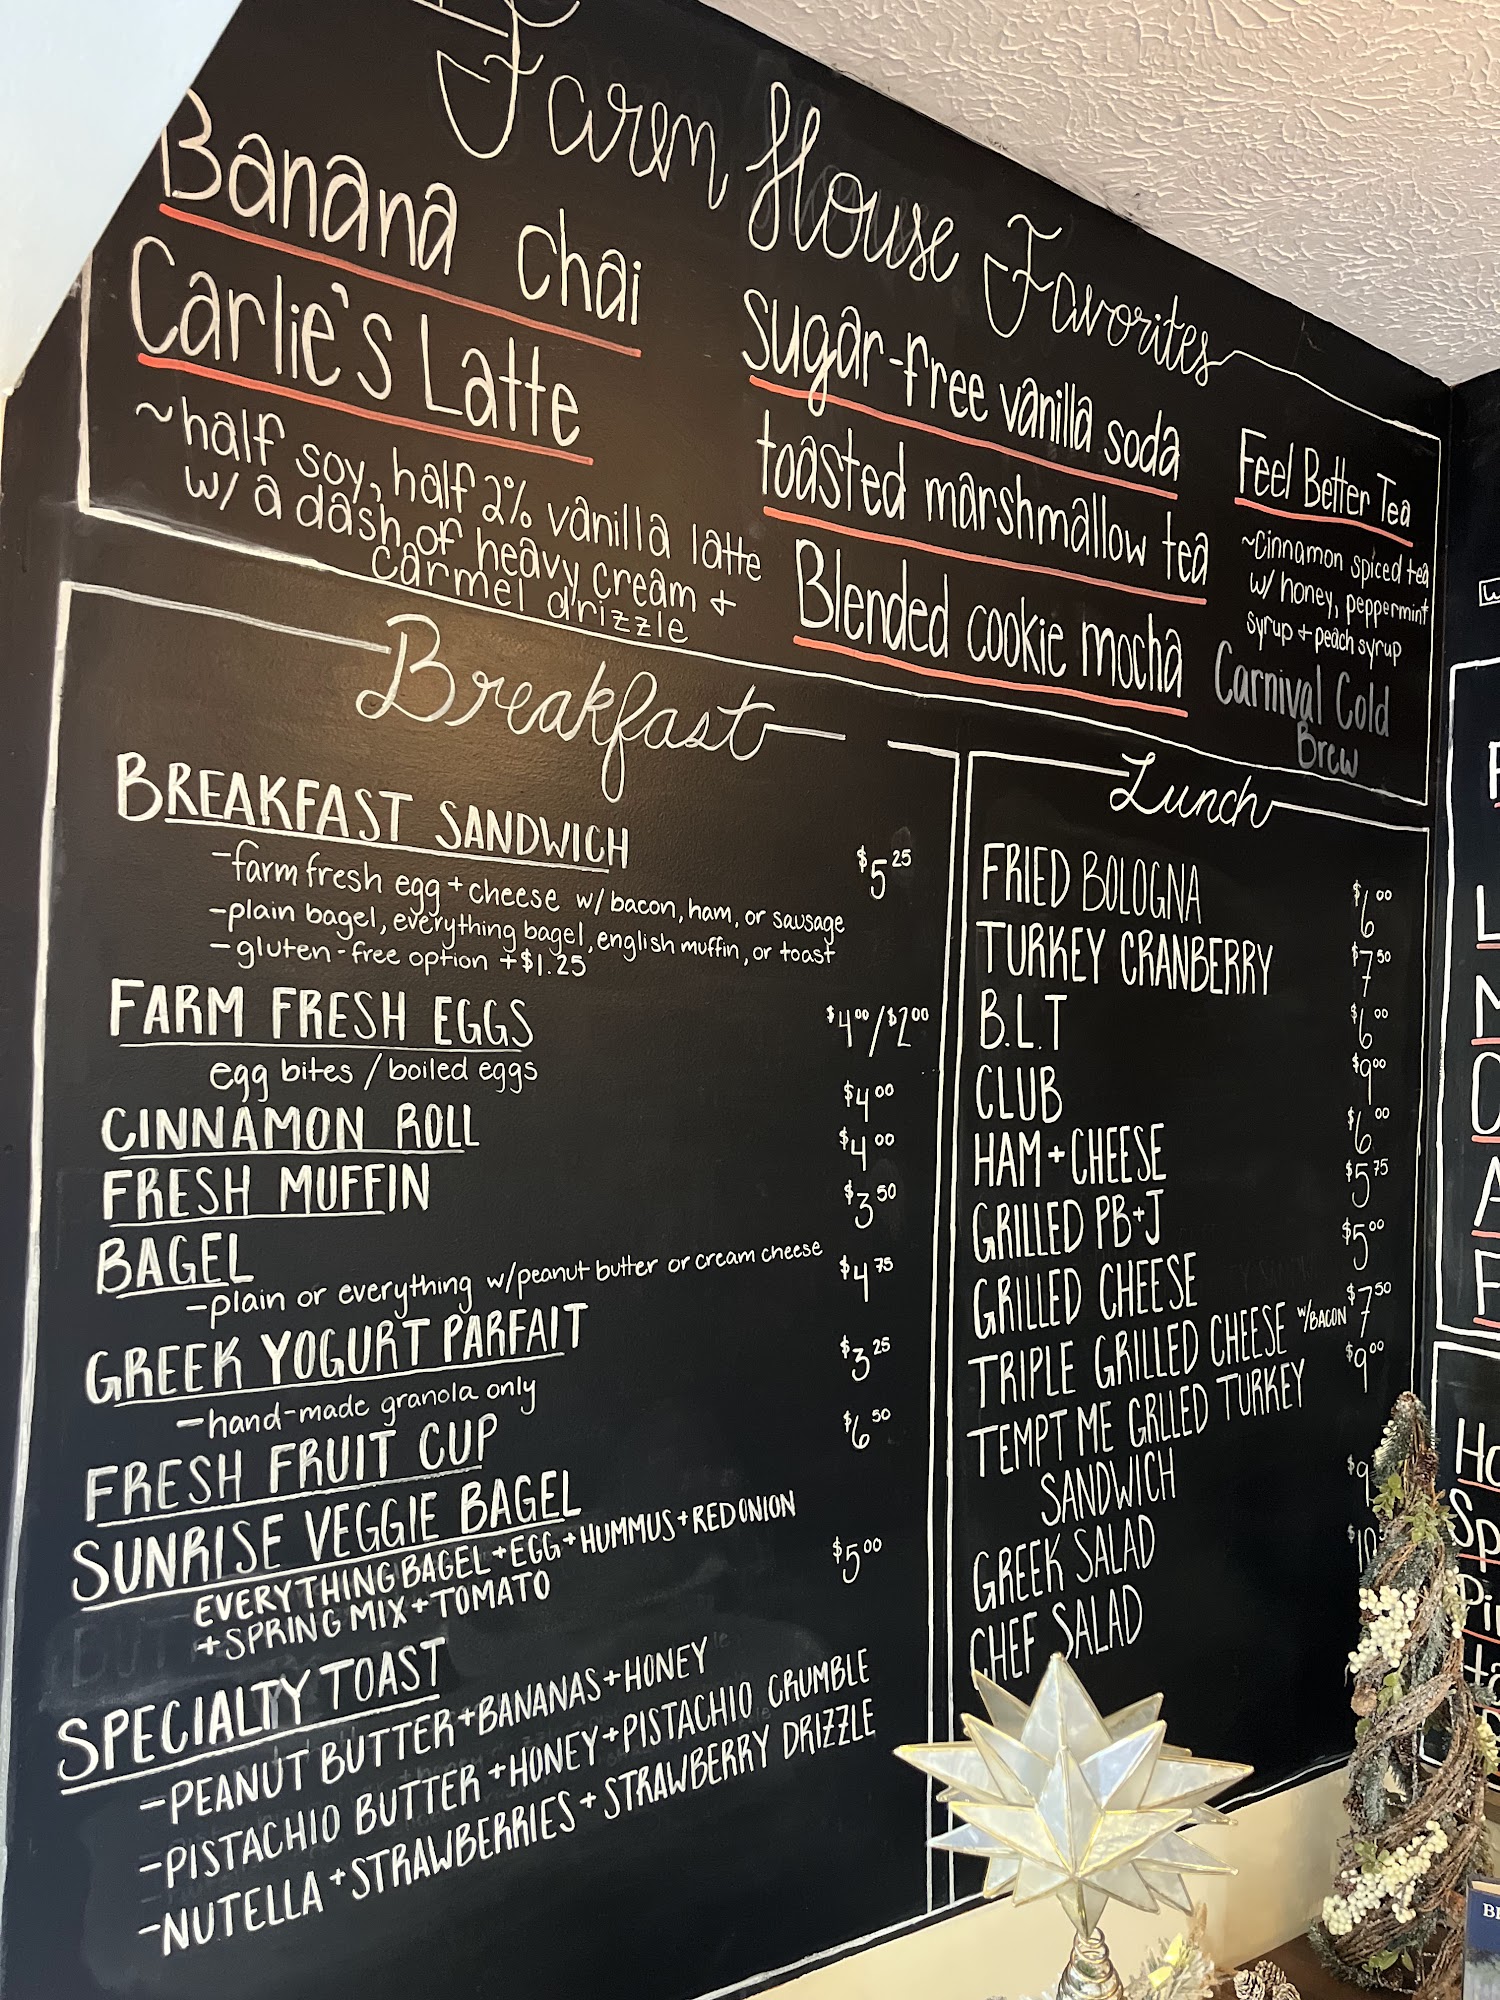 Farm House Favorites
Banana chai
Carlie's Latte
~half soy, half 2% vanilla latte
w/ a dash of heavy cream +
carmel drizzle
sugar-free vanilla soda
toasted marshmallow tea
Blended cookie mocha
Feel Better Tea
~cinnamon spiced tea
w/ honey, peppermint
syrup + peach syrup
Carnival Cold
Brew
Breakfast
BREAKFAST SANDWICH $5.25
-farm fresh egg + cheese w/ bacon, ham, or sausage
-plain bagel, everything bagel, english muffin, or toast
-gluten-free option +$1.25
FARM FRESH EGGS $4.00/$2.00
egg bites / boiled eggs
CINNAMON ROLL $4.00
FRESH MUFFIN $4.00
BAGEL $3.50
-plain or everything w/peanut butter or cream cheese
GREEK YOGURT PARFAIT $4.75
-hand-made granola only
FRESH FRUIT CUP $3.25
SUNRISE VEGGIE BAGEL $6.50
EVERYTHING BAGEL + EGG + HUMMUS + RED ONION
+ SPRING MIX + TOMATO
SPECIALTY TOAST $5.00
-PEANUT BUTTER + BANANAS + HONEY
-PISTACHIO BUTTER + HONEY + PISTACHIO CRUMBLE
-NUTELLA + STRAWBERRIES + STRAWBERRY DRIZZLE
Lunch
FRIED BOLOGNA $6.00
TURKEY CRANBERRY $7.50
B.L.T $6.00
CLUB $9.00
HAM + CHEESE $6.00
GRILLED PB+J $5.75
GRILLED CHEESE $5.00
TRIPLE GRILLED CHEESE w/BACON $7.50
TEMPT ME GRLLED TURKEY $9.00
SANDWICH
GREEK SALAD $9
CHEF SALAD $10